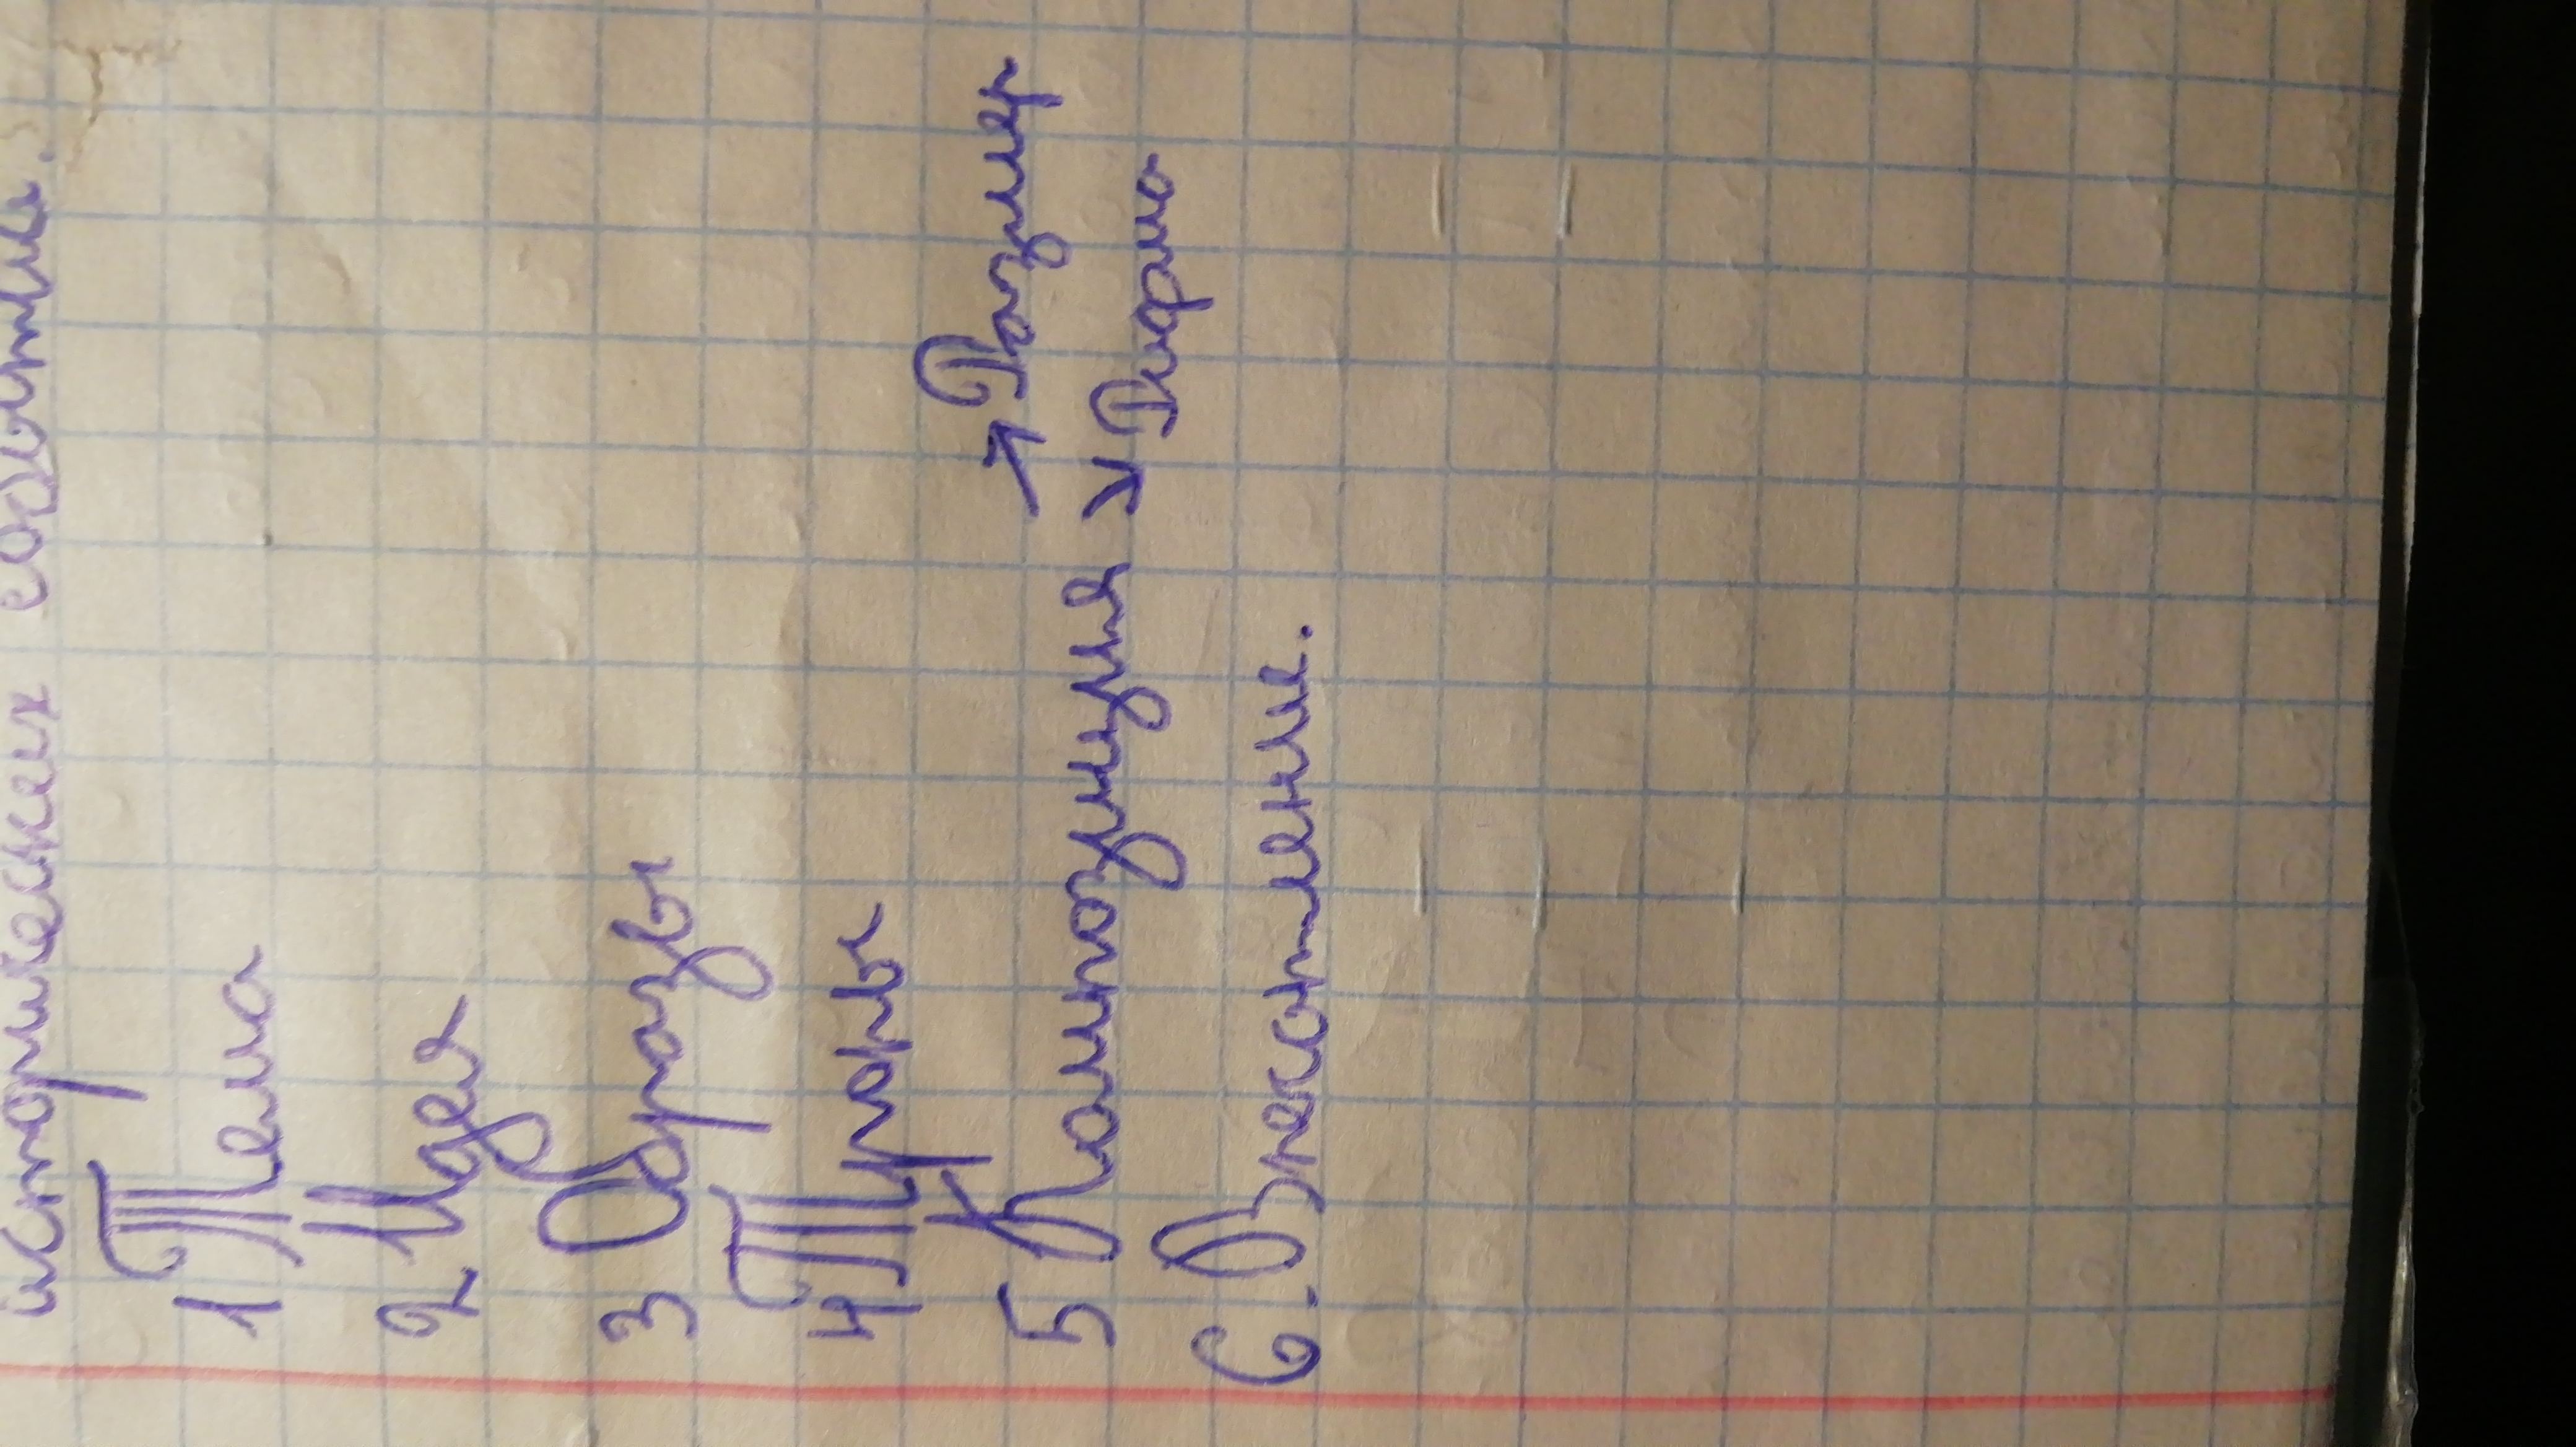 исторических событий.
1 Тема
2 Идея
3 Образы
4 Тropы
5 Композиция → Размер
↘ Рифма
6. Впечатление.